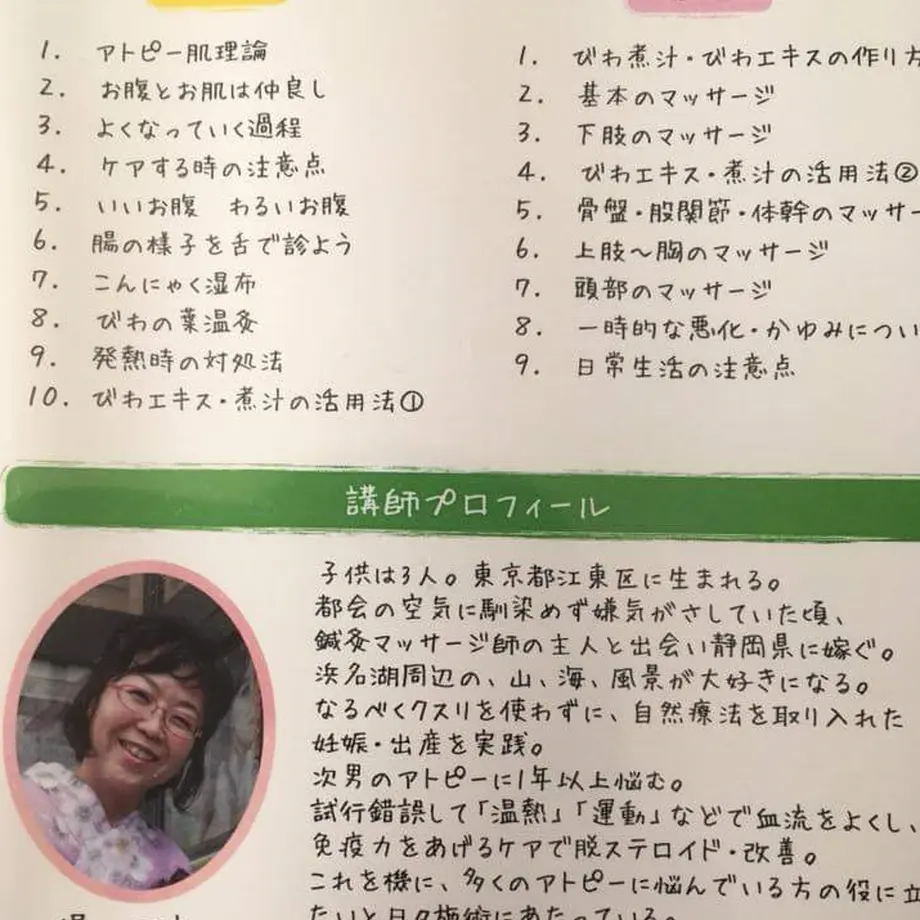 1. アトピー肌理論
2. お腹とお肌は仲良し
3. よくなっていく過程
4. ケアする時の注意点
5. いいお腹 わるいお腹
6. 腸の様子を舌で診よう
7. こんにゃく湿布
8. びわの葉温灸
9. 発熱時の対処法
10. びわエキス・煮汁の活用法①
1. びわ煮汁・びわエキスの作り方
2. 基本のマッサージ
3. 下肢のマッサージ
4. びわエキス・煮汁の活用法②
5. 骨盤・股関節・体幹のマッサー
6. 上肢〜胸のマッサージ
7. 頭部のマッサージ
8. 一時的な悪化・かゆみについ
9. 日常生活の注意点
講師プロフィール
子供は3人。東京都江東区に生まれる。
都会の空気に馴染めず嫌気がさしていた頃、
鍼灸マッサージ師の主人と出会い静岡県に嫁ぐ。
浜名湖周辺の、山、海、風景が大好きになる。
なるべくクスリを使わずに、自然療法を取り入れた
妊娠・出産を実践。
次男のアトピーに1年以上悩む。
試行錯誤して「温熱」「運動」などで血流をよくし、
免疫力をあげるケアで脱ステロイド・改善。
これを機に、多くのアトピーに悩んでいる方の役に立
たいと日々施術にあたっている。